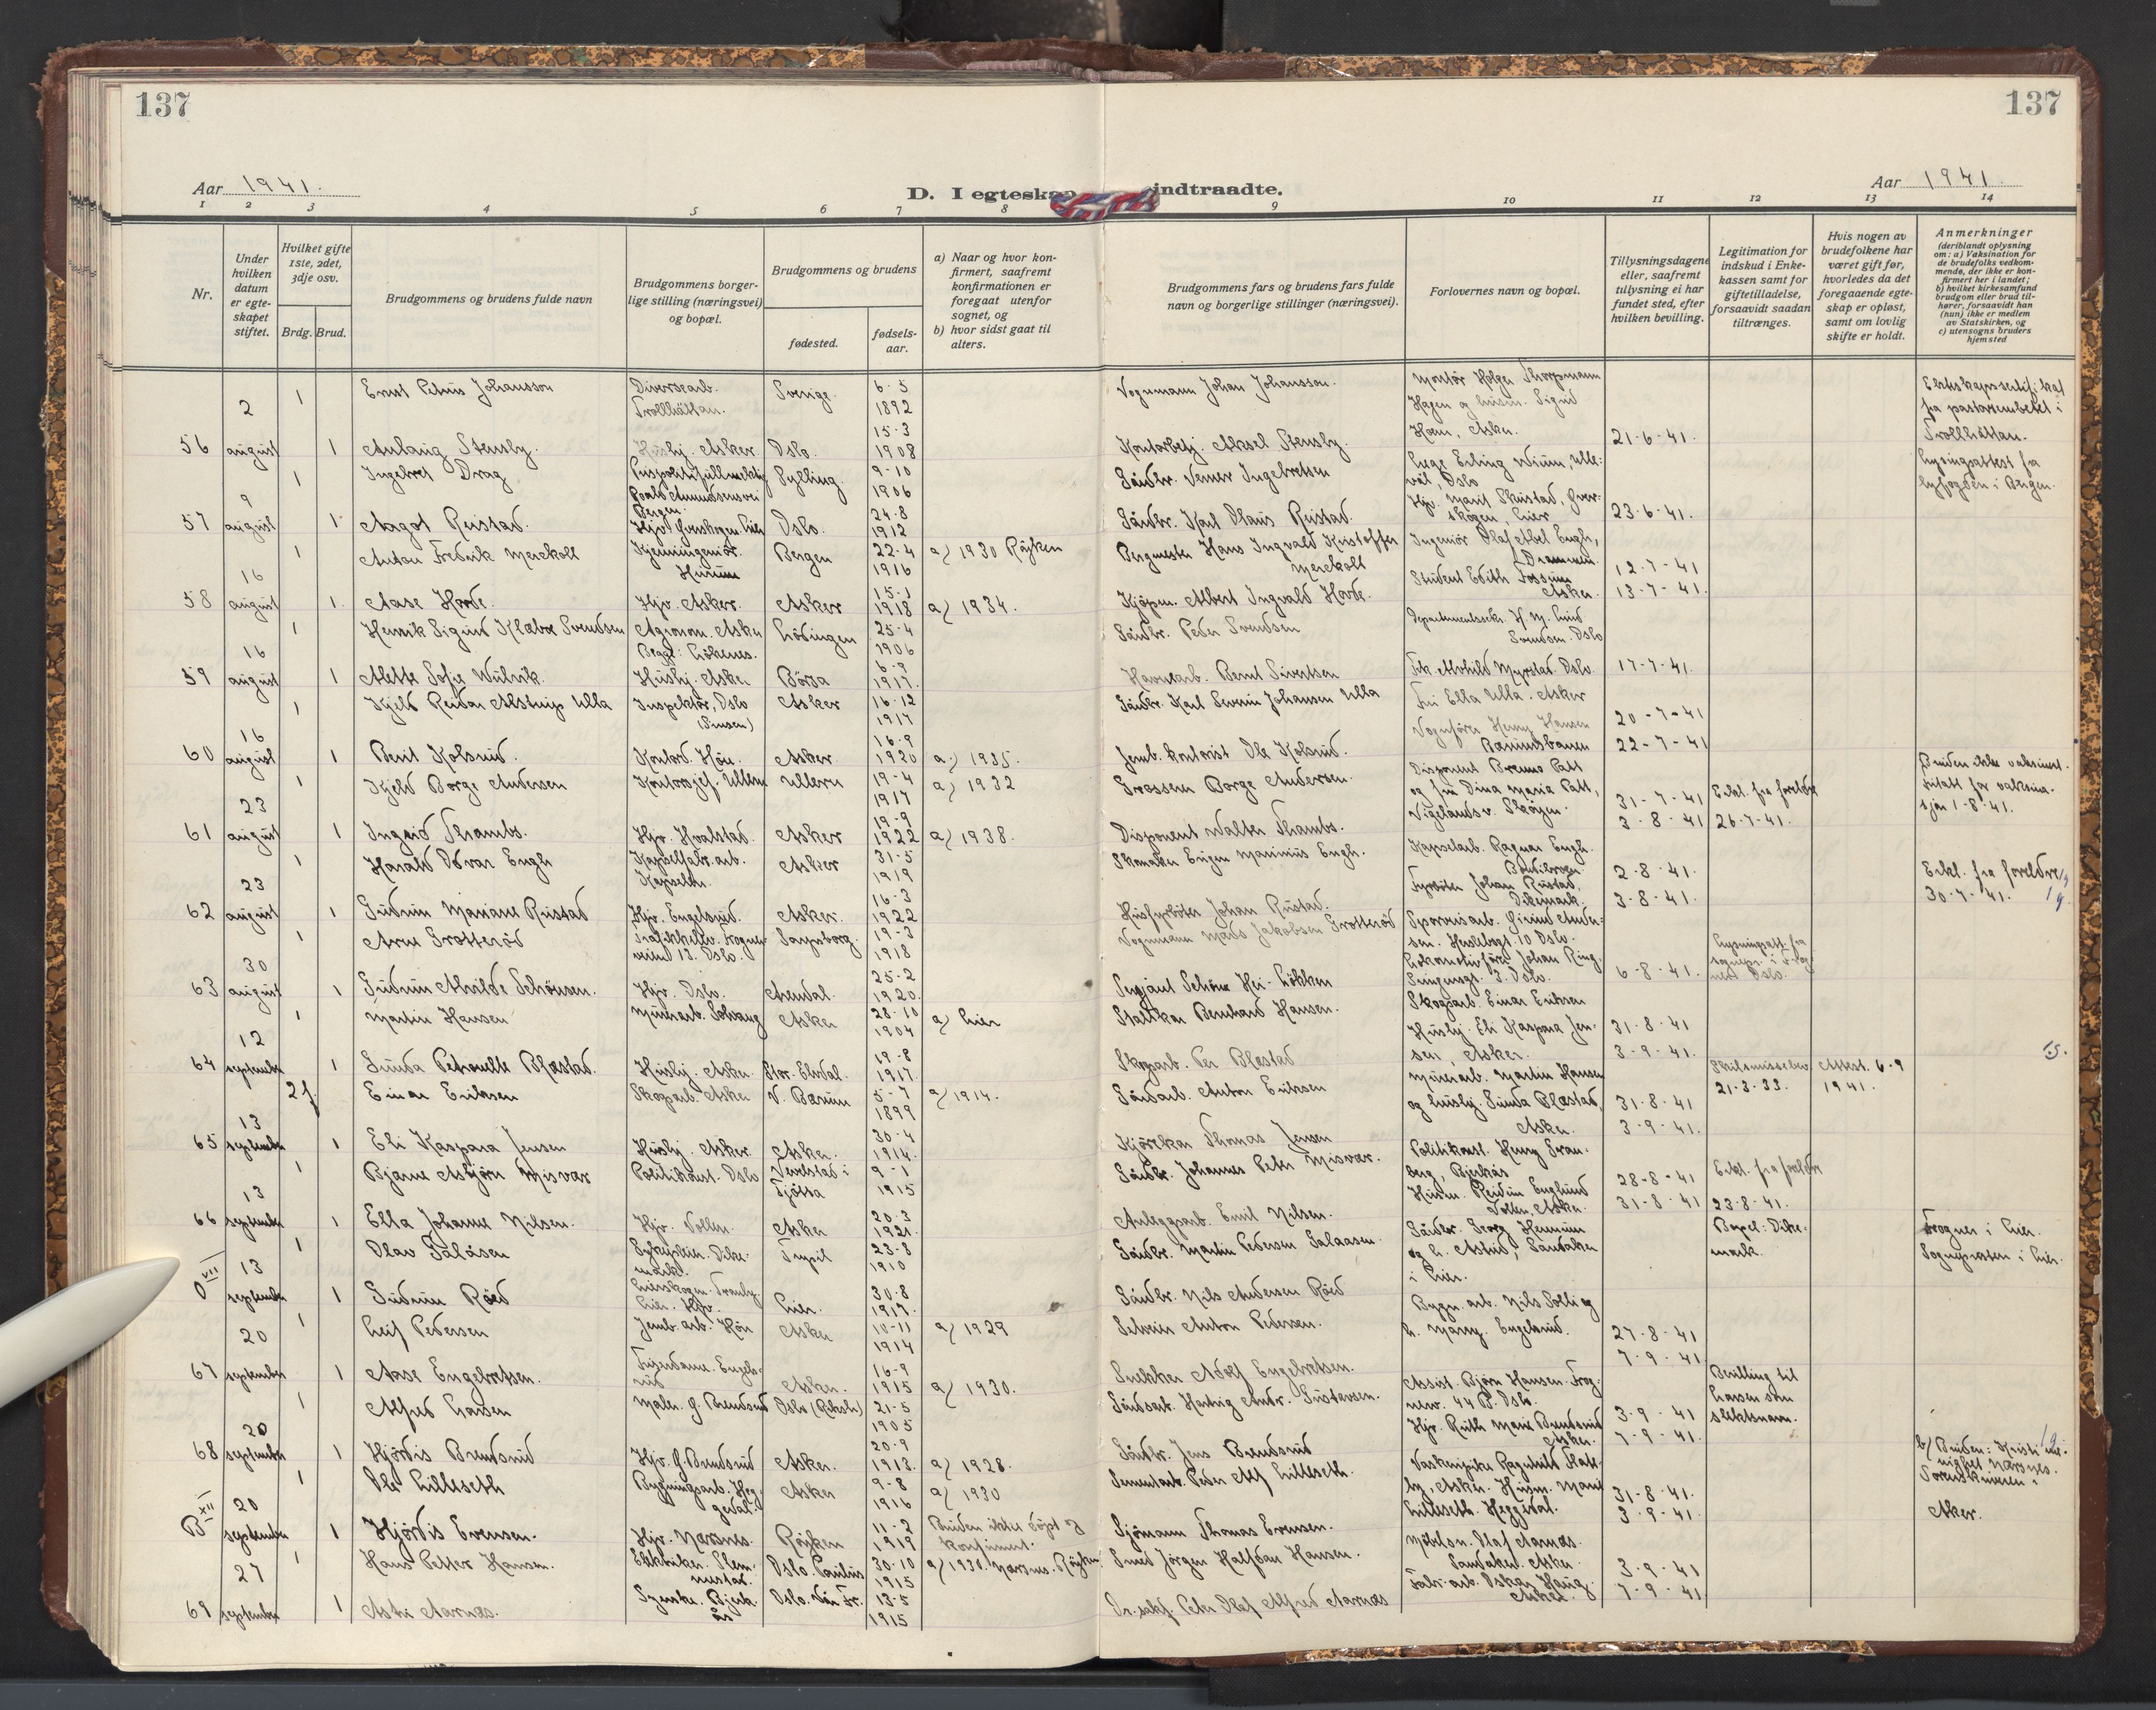 137
137
Aar 1941.
D. I egteska
indtraadte.
Aar 1941.
1 2 3 4 5 6 7 8 9 10 11 12 13 14
Nr.
Under hvilken datum er egteskapet stiftet.
Hvilket gifte 1ste, 2det, 3dje osv.
Brdg. Brud.
Brudgommens og brudens fulde navn
Brudgommens borgerlige stilling (næringsvei) og bopæl.
Brudgommens og brudens
fødested.
fødselsaar.
a) Naar og hvor konfirmert, saafremt konfirmationen er foregaat utenfor sognet, og
b) hvor sidst gaat til alters.
Brudgommens fars og brudens fars fulde navn og borgerlige stillinger (næringsvei).
Forlovernes navn og bopæl.
Tillysningsdagene eller, saafremt tillysning ei har fundet sted, efter hvilken bevilling.
Legitimation for indskud i Enkekassen samt for giftetilladelse, forsaavidt saadan tiltrænges.
Hvis nogen av brudefolkene har været gift før, hvorledes da det foregaaende egteskap er opløst, samt om lovlig skifte er holdt.
Anmerkninger
(deriblandt oplysning om: a) Vaksination for de brudefolks vedkommende, der ikke er konfirmert her i landet; b) hvilket kirkesamfund brudgom eller brud tilhører, forsaavidt han (hun) ikke er medlem av Statskirken, og c) utensogns bruders hjemsted
2 1 Ernst Petrus Johansson Diversearb. Trollhättan. Sverige 6-5 1892 Vognmann Johan Johansson. Montør Holger Thorpmann Hagen og husm. Sigrid Horn, Asker. Ekteskapssertifikat fra pastorembetet i Trollhättan.
56 august 1 Anlaug Stensby. Husbj. Asker Oslo. 15-3 1908 Kontorbetj. Aksel Stensby. 21-6-41.
9 1 Ingebret Drag Prispolitifullmektig Roald Amundsensvei Bergen. Sylling. 9-10 1906 Gårdbr. Verner Ingebretsen Lege Erling Wium, Ullevål, Oslo Lysingsattest fra byfogden i Bergen.
57 august 1 Aagot Reistad. Hjv. Overskogen. Lier Oslo. 24-8 1912 Gårdbr. Karl Olaus Reistad. Hjv. Marit Skuistad, Overskogen, Lier 23-6-41.
16 1 Anton Fredrik Merckoll Kjemiingeniør. Hurum Bergen 22-4 1916 a) 1930 Røyken Bergmester Hans Ingvald Kristoffer Merckoll Ingeniør Olaf Abel Engh, Drammen. 12-7-41
58 august 1. Aase Horde. Hjv. Asker. Asker 15-1 1918 a) 1934. Kjøpm. Albert Ingvald Horde. Student Edith Fossum Asker. 13-7-41.
16 1 Henrik Sigurd Klæboe Svendsen Agronom. Asker Lødingen 25-4 1906 Gårdbr. Peder Svendsen Departementssekr. H. M. Lund Svendsen. Oslo
59 august 1 Alette Sofie Wulvik. Husbj. Asker Børsa 6-9 1917. Havnearb. Bernt Sivertsen Frk. Alvhild Myrstad. Oslo. 17-7-41.
16 1 Kjell Reidar Alstrup Ulla Inspektør, Oslo (Sinsen) Asker 16-12 1917 Gårdbr. Karl Severin Johansen Ulla Fru Ella Ulla. Asker 20-7-41
60 august 1 Berit Kolsrud. Kontord. Høn. Asker 16-9 1920 a) 1935. Jernb. kontorist Ole Kolsrud. Vognfører Henry Hansen Bærumsbanen 22-7-41
23 1 Kjeld Borge Andersen Kontorsjef. Ullern Ullern 19-4 1917 a) 1932 Grosserer Borge Andersen. Disponent Bruno Patt og fru Dina Maria Patt, Vigelandsv. Skøyen. 31-7-41 Erkl. fra foreldre 26-7-41. Bruden ikke vaksinert. 1-8-41.
61 august 1 Ingrid Thambs. Hjv. Hvalstad. Asker 19-9 1922 a) 1938. Disponent Walter Thambs. 3-8-41
23 1 Harald Odvar Engh Kapselfabr. arb. Asker 31-5 1919 Skomaker Eugen Marinius Engh. Kapselarb. Ragnar Engh. 2-8-41. Erkl. fra foreldre 30-7-41.
62 august 1 Gudrun Mariane Rustad Hjv. Engelsrud. Asker. 16-3 1922 Husfyrbøter Johan Rustad. Fyrbøter Johan Rustad, Dikemark. 3-8-41.
30 1 Arne Grotterød Trafikkelev. Frognerveien 13. Oslo. Sarpsborg. 19-3 1918 Vognmann Mads Jakobsen Grotterød Sporveisarb. Øivind Andersen. Oslo. Lysningsatt. fra
63 august 1 Gudrun Alvilde Schönsen. Hjv. Oslo. Arendal. 25-2 1920. Sersjant Schöne Hei-Løkken Lokomotivfører Johan Ring, Oslo. 6-8-41.
12 1 Martin Hansen Murerarb. Solvang Asker 28-10 1904 a) Lier Stallkar Bernhard Hansen. Skogsarb. Einar Eriksen 31-8-41
64 september 1 Gunda Petronelle Blæstad. Husbj. Asker Stor-Elvdal. 19-8 1917. Skogarb. Per Blæstad Husbj. Eli Kaspara Jensen, Asker. 3-9-41.
13 2 f. Einar Eriksen Skogarb. Asker V. Bærum 5-7 1899 a) 1914. Gårdarb. Anton Eriksen Murerarb. Martin Hansen og husbj. Gunda Blæstad, Asker. 31-8-41 Skilsmissebev. 21-3-33. Attest. 6-9 1941.
65 september 1 Eli Kaspara Jensen Husbj. Asker Asker. 30-4 1914. Kjørekar Thomas Jensen 3-9-41.
13 1 Bjarne Asbjørn Misvær Politikonst. Oslo Vevelstad i Tjøtta 9-1 1915 Gårdbr. Johannes Peter Misvær. Politikonst. Henry Granberg, Bjerkås 28-8-41 Erkl. fra foreldre 23-8-41.
66 september 1 Ella Johanne Nilsen. Hjv. Vollen. Asker 20-3 1921. Anleggsarb. Emil Nilsen. Husm. Reidun Englund Vollen, Asker. 31-8-41
13 1 Olav Salåsen Sykepleier. Dikemark. Trysil 23-8 1910 Gårdbr. Martin Pedersen Salaasen. Gårdbr. Georg Hennum og h. Astrid, Sandaker i Lier. Bopel: Dikemark. Frogner i Lier. Sognepresten i Lier.
O VII september 1 Gudrun Røed Lierskogen. Tranby. Lier. Hjv. Lier. 30-8 1917. Gårdbr. Nils Andersen Røed
20 1 Leif Pedersen Jernb. arb. Høn Asker 10-11 1914 a) 1929 Anton Pedersen. Bygn. arb. Nils Solli og h. Marry. Engelsrud. 27-8-41
67 september 1 Aase Engebretsen. Frisørdame. Engelsrud Asker. 16-9 1915 a) 1930. Snekker Adolf Engebretsen. 7-9-41
20 1 Alfred Larsen Maler. Ø. Brendsrud Oslo (Riksh.) 21-5 1905 Gårdsarb. Hartvig Andr. Gustavsen. Assist. Bjørn Hansen. Frognerv. 44 B. Oslo. 3-9-41 Bevilling til Larsen som slektsnavn.
68 september 1 Hjørdis Brendsrud Hjv. Ø. Brendsrud Asker. 20-9 1913. a) 1928. Gårdbr. Jens Brendsrud Hjv. Ruth Marie Brendsrud Asker. 7-9-41.
20 1 Ole Lilleseth Bygningsarb. Heggedal. Asker 9-8 1916 a) 1930 Sementarb. Peder Alf Lilleseth. Vaskeripike Ragnhild, Asker. Husm. Marie Lilleseth. Heggedal. 31-8-41. b) Bruden: Kristi menighet Nærsnes. Sorenskriveren i Asker.
B XII september 1 Hjørdis Evensen. Hjv. Nærsnes Røyken 11-2 1919 Bruden ikke døpt og konfirmert. Sjømann Thomas Evensen. 3-9-41.
27 1 Hans Petter Hansen. Elektriker. Slemmestad. Oslo. Paulus 30-10 1915 a) 1930. Nærsnes. Røyken. Smed Jørgen Halfdan Hansen. Møbelsn. Olaf Aarnæs. Sandaker. Asker 3-9-41
69 september 1 Astri Aarnæs. Syerske. Bjerkås Oslo. Vår Fr. 13-5 1915 Peter Olaf Alfred Aarnæs Fabr. arb. Oskar Haug. Asker. 7-9-41